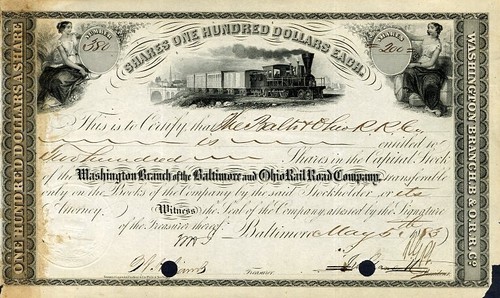 NUMBER
380
SHARES ONE HUNDRED DOLLARS EACH.
SHARES
200
ONE HUNDRED DOLLARS A SHARE
WASHINGTON BRANCH B. & O. R. R. Co.
This is to Certify that The Balto & Ohio R. R. Co
is entitled to
two hundred Shares in the Capital Stock
of the Washington Branch of the Baltimore and Ohio Rail Road Company, transferable
only on the Books of the Company by the said Stockholder or its
Attorney. Witness the Seal of the Company, attested by the Signature
of the Treasurer thereof.
Baltimore May 5th
Treasurer